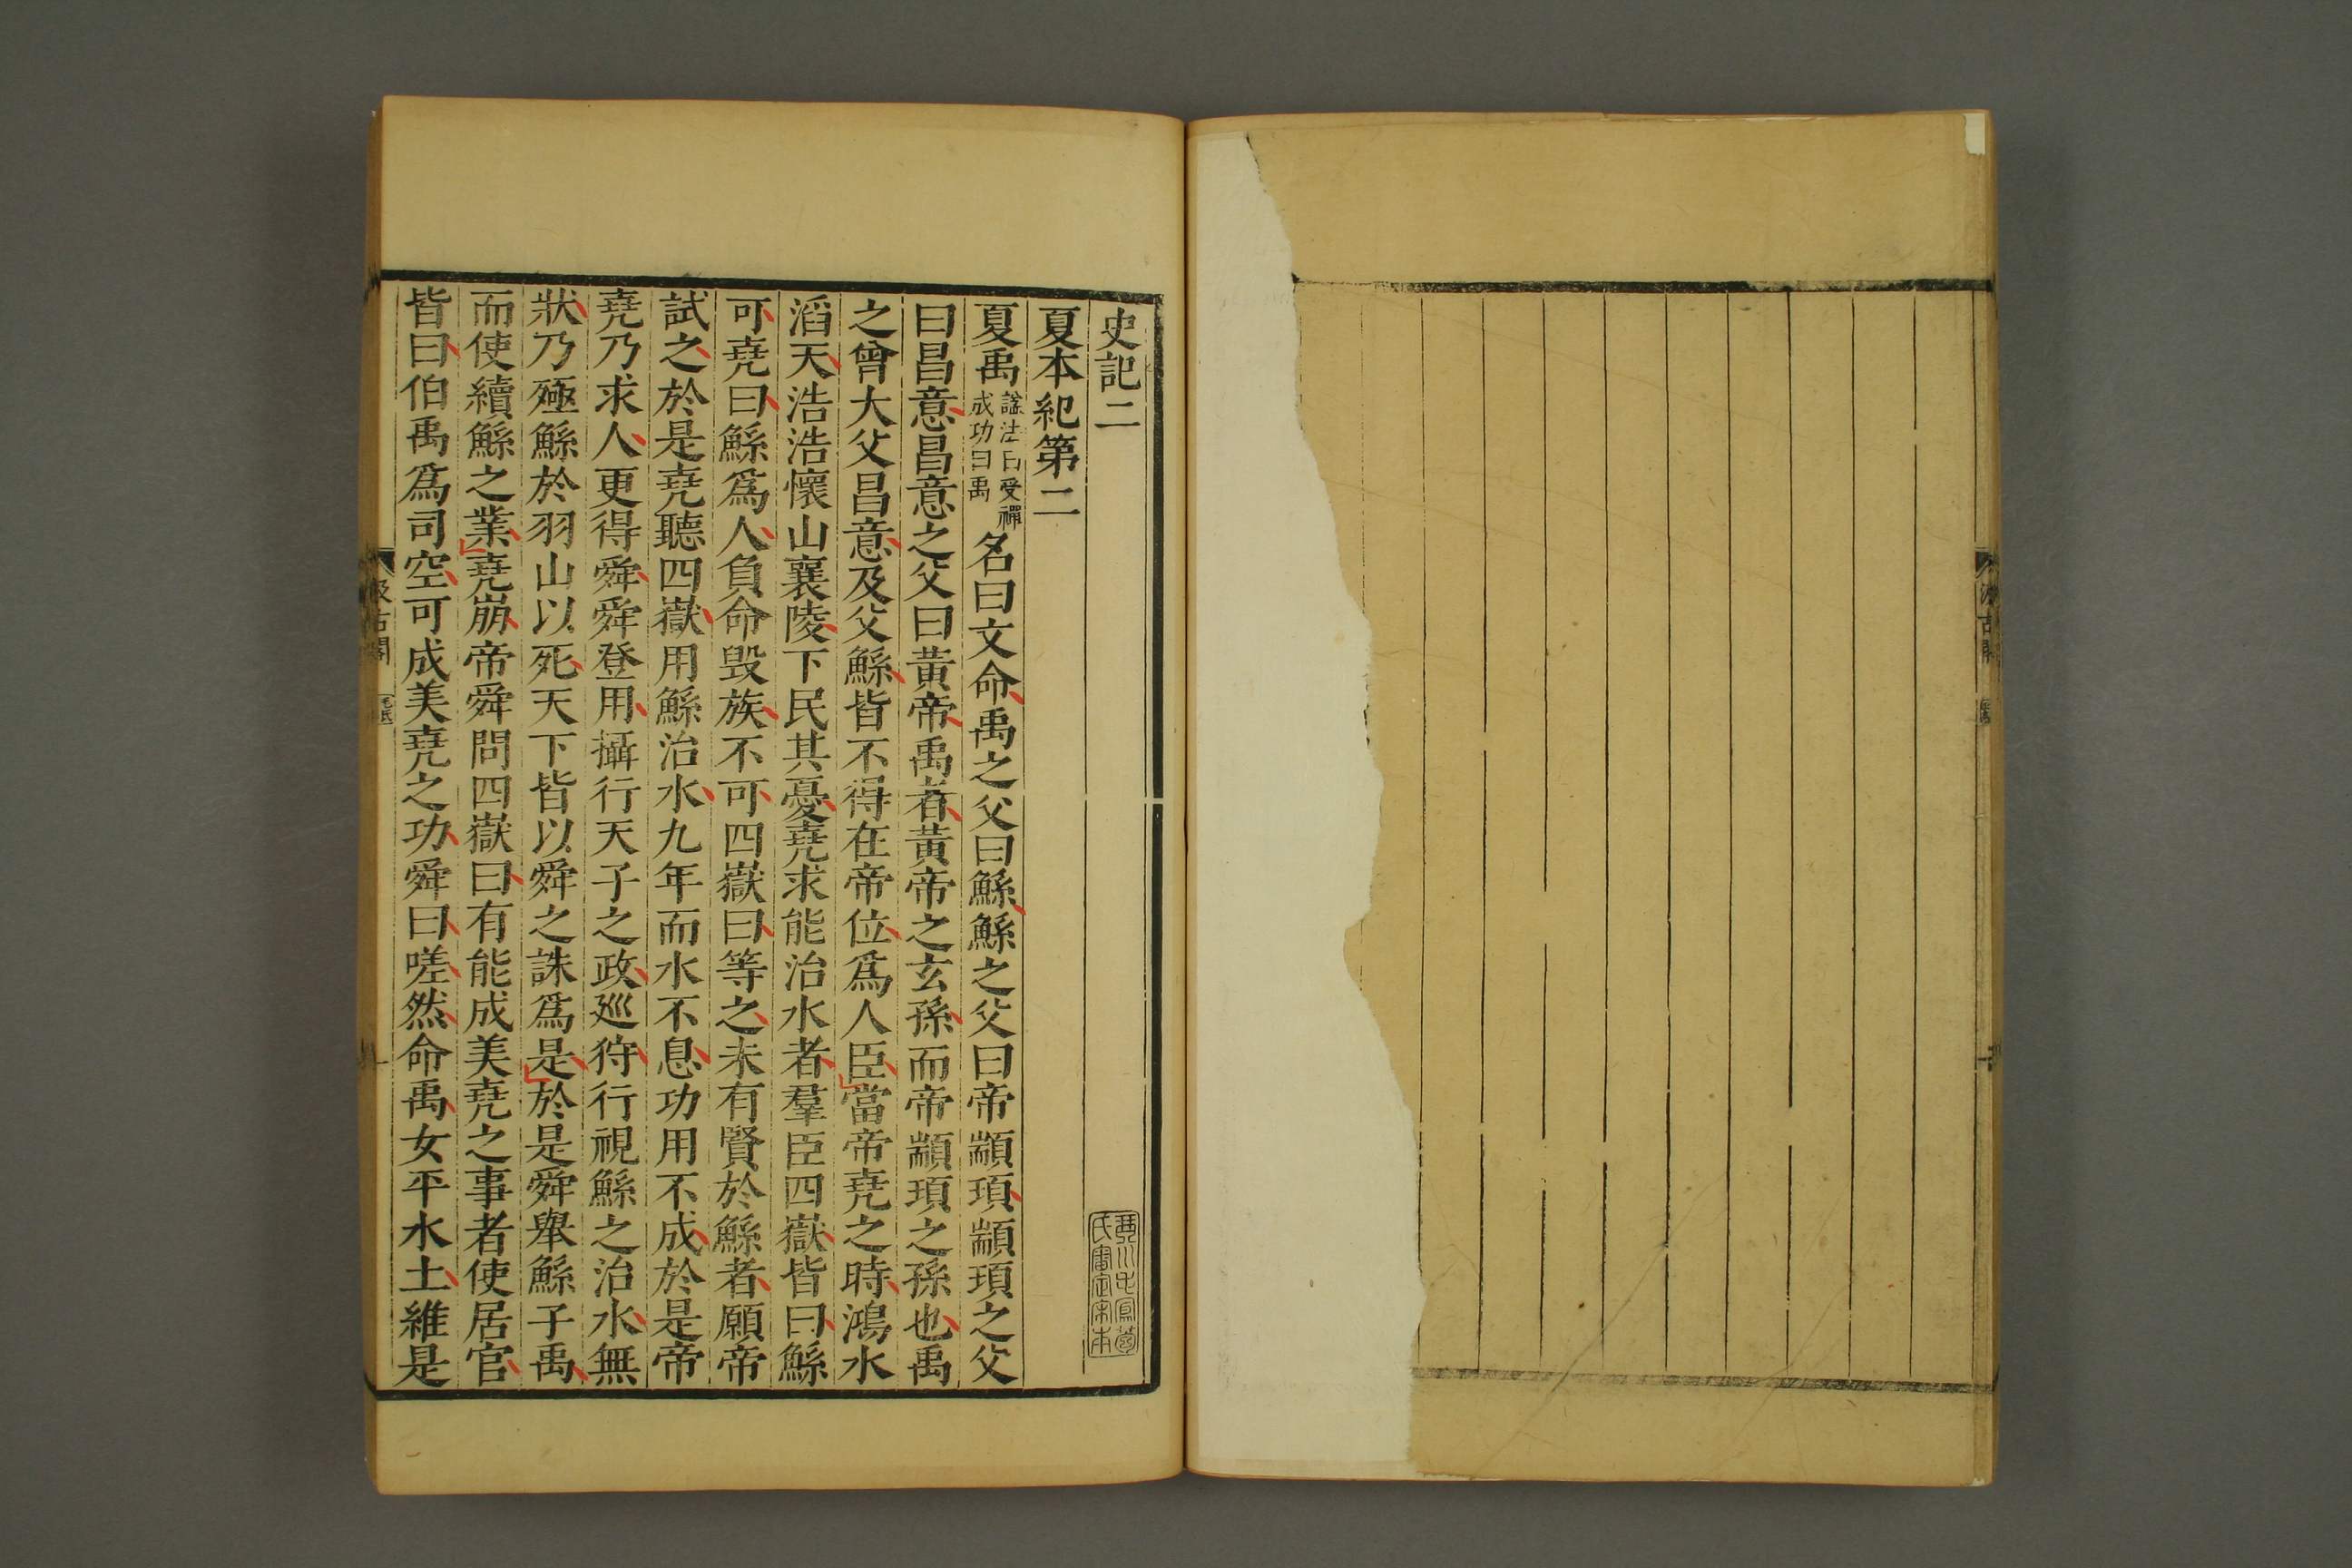 史記二
夏本紀第二
夏禹諡法曰受禪成功曰禹名曰文命禹之父曰鯀鯀之父曰帝顓頊顓頊之父
曰昌意昌意之父曰黃帝禹者黃帝之玄孫而帝顓頊之孫也禹
之曾大父昌意及父鯀皆不得在帝位爲人臣當帝堯之時鴻水
滔天浩浩懷山襄陵下民其憂堯求能治水者羣臣四嶽皆曰鯀
可堯曰鯀爲人負命毀族不可四嶽曰等之未有賢於鯀者願帝
試之於是堯聽四嶽用鯀治水九年而水不息功用不成於是帝
堯乃求人更得舜舜登用攝行天子之政巡狩行視鯀之治水無
狀乃殛鯀於羽山以死天下皆以舜之誅爲是於是舜舉鯀子禹
而使續鯀之業堯崩帝舜問四嶽曰有能成美堯之事者使居官
皆曰伯禹爲司空可成美堯之功舜曰嗟然命禹女平水土維是
汲古閣
汲古閣